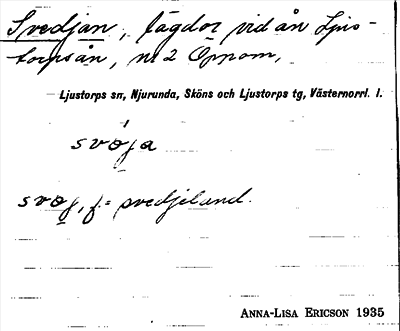 Svedjan, lägdor vid ån Ljus-
torpsån, nr 2 Öppom,
Ljustorps sn, Njurunda, Sköns och Ljustorps tg, Västernorrl. l.
svøja
svøj, f = svedjeland.
ANNA-LISA ERICSON 1935